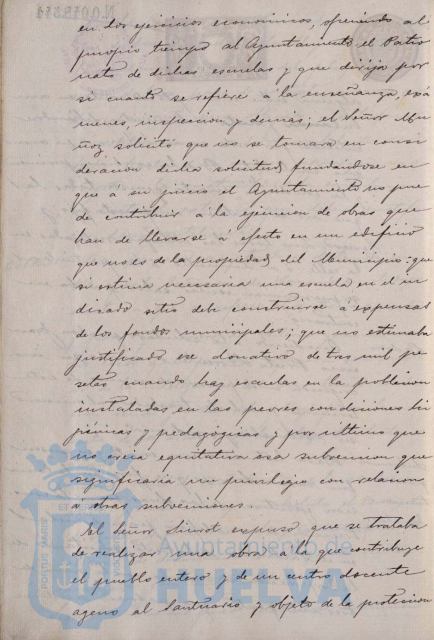 en dos ejercicios economicos, ofreciendo al
propio tiempo al Ayuntamiento el Patro
nato de dichas escuelas y que dirija por
si cuanto se refiere á la enseñanza, exá
menes, inspeccion y demás; el Señor Mu
ñoz solicitó que no se tomara en consi
deracion dicha solicitud, fundandose en
que á su juicio el Ayuntamiento no pue
de contribuir á la ejecucion de obras que
han de llevarse á efecto en un edificio
que no es de la propiedad del Municipio: que
si estima necesaria una escuela en el in
dicado sitio debe construirse á expensas
de los fondos municipales; que no estimaba
justificado ese donativo de tres mil pe
setas cuando hay escuelas en la poblacion
instaladas en las peores condiciones hi
jiénicas y pedagógicas y por último que
no creia equitativa esa subvencion que
significaria un privilegio con relacion
á otras subvenciones.
El Señor Siurot expuso que se trataba
de realizar una obra á la que contribuye
el pueblo entero y de un centro docente
ageno al Santuario y objeto de la proteccion
Ayuntamiento de
HUELVA